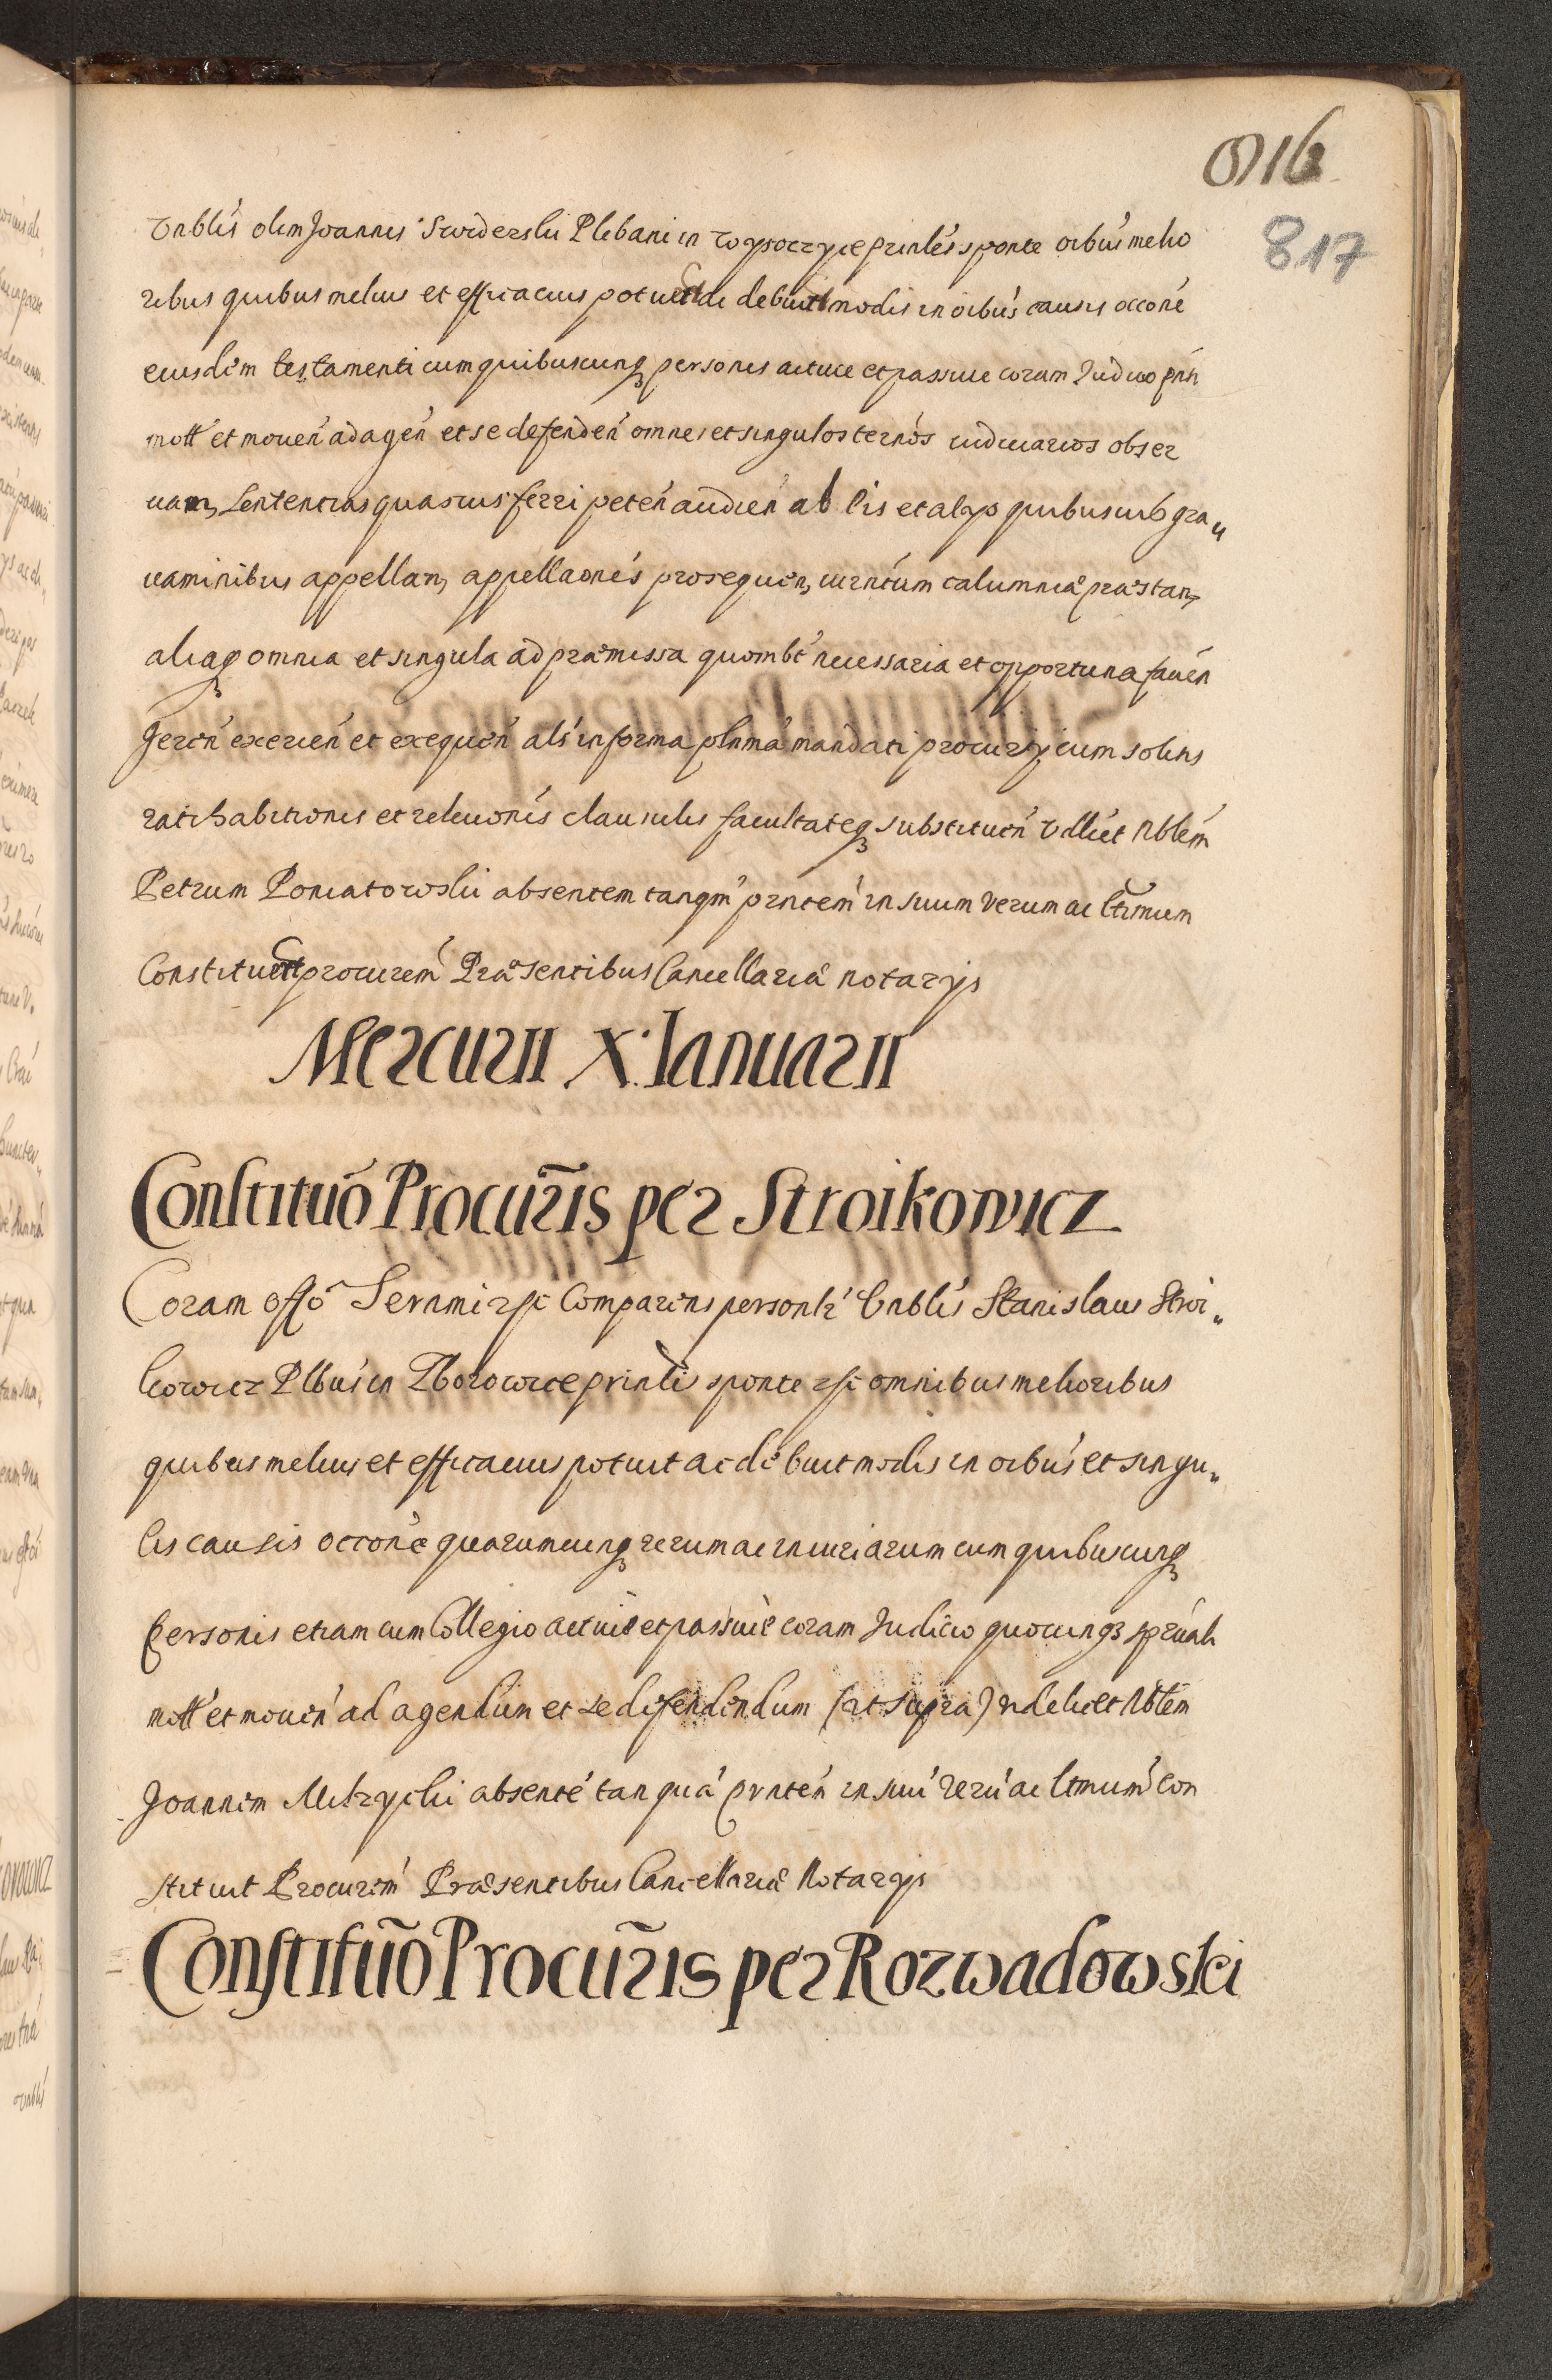 816
817
Vnblis olim Joannis Swiderski Plebani in Wysoczyce prinles sponte oibus melio
ribus quibus melius et efficacius potuerunt debuerunt modis in oibus causis occone
eiusdem testamenti cum quibuscunq personis actiue et passiue coram Iudicio
mott et mouen ad agen et se defenden omnes et singulos ternos iudiciarios obser
uan, Sententias quasuis ferri peten audien ab lis et alys quibusuis gra„
uaminibus appellan, appellaones prosequen, iurntum calumniæ præstan,
aliaq omnia et singula ad præmissa quombt necessaria et opportuna facien
geren exercen et exequen als in forma plnma mandati procury cum solins
ratihabitionis et releuonis clausulis facultateq substituen Vdlict Nblem
Petrum Poniatowski absentem tanqm prntem in suum verum ac ltimum
Constituerunt procurem Præsentibus Cancellariæ notarys
Mercurii X. Ianuarii
Constituo Procuris per Stroikowicz
Coram offo Sernmi rsc Comparens personlr Vnblis Stanislaus Stroi„
kowicz Plbus in Zborowice prinlis sponte rsc omnibus melioribus
quibus melius et efficacius potuit ac debuit modis in oibus et singu„
lis causis occone quarumcunq rerum ac iniuriarum cum quibuscunq
Personis etiam cum Collegio actiue et passiue coram Iudicio quocunq spruali
mott et mouen ad agendum et se defendendum (ut supra) videlicet Nblem
Joannem absente tanqua prnten in suu veru ac ltmum Con
stituit Procurem Præsentibus Cancellariæ Notarys
Constituo Procuris per Rozwadowski